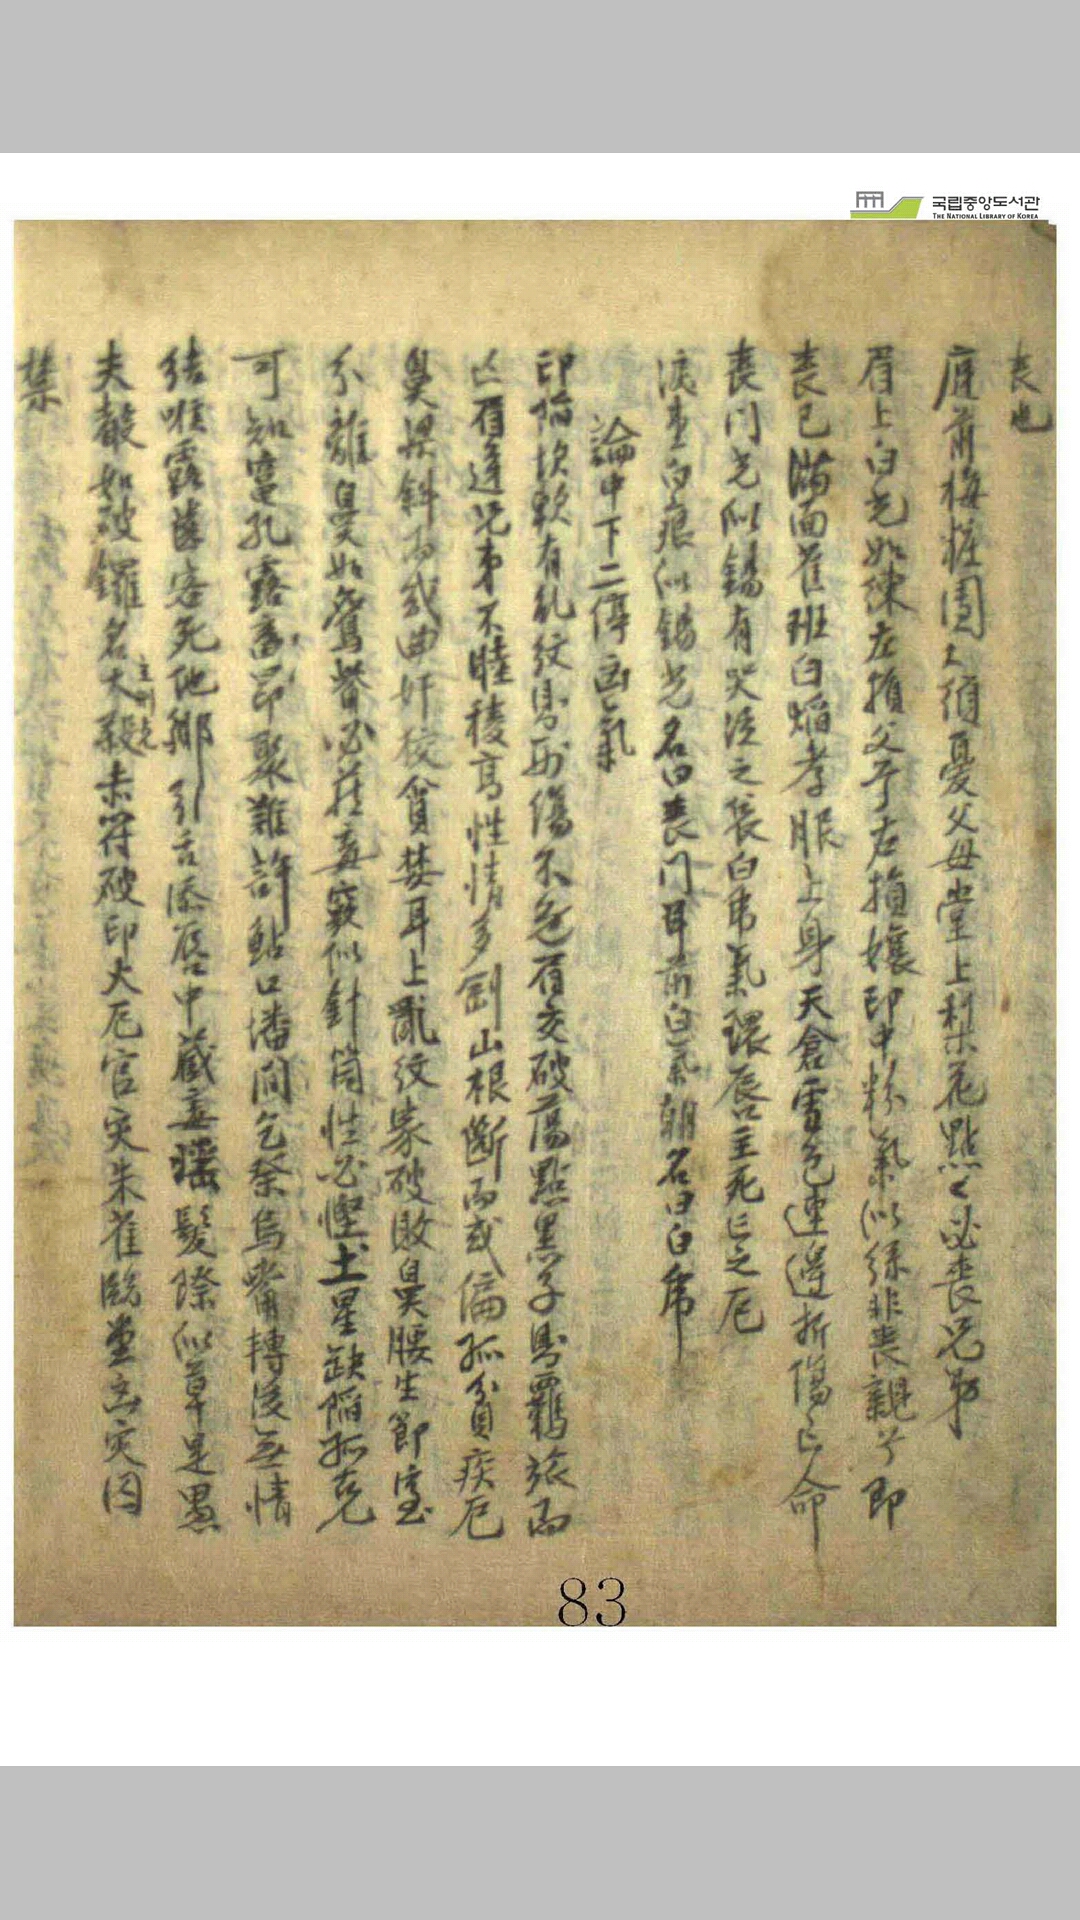 국립중앙도서관
THE NATIONAL LIBRARY OF KOREA
喪也
庭前梅粧團〻須憂父母堂上梨花點〻必喪兄弟
眉上白光如練左損父兮右損孃印中粉氣似絲非喪親兮即
喪己滿面雀班白焰孝服上身天倉雪色連邊折傷亡命
喪門光似錫有哭泣之喪白帍氣環唇主死亡之厄
淚堂白痕似錫光名曰喪門耳前白氣朝名曰白帍
論中下二停凶氣
印陷坎軟有乱紋為刑傷不免眉交破蕩點黑子為羈旅而
亡眉逆兄弟不睦稜高性情多剛山根斷而或偏孤貧疾厄
鼻梁斜而或曲奸狡貪婪耳上亂紋家破敗鼻腰生節室
分離鼻如鷹嘴必藏毒竅似針筒性必慳土星缺陷孤克
可知竈孔露高昂聚難許鮎口墦间乞祭烏嘴轉後無情
结喉露齒客死他鄉引舌添唇中藏毒瑤髮際似草是愚
夫聲如破鑼名大殺主刑克未符破印大厄官灾朱雀臨堂玄灾囚
禁
83